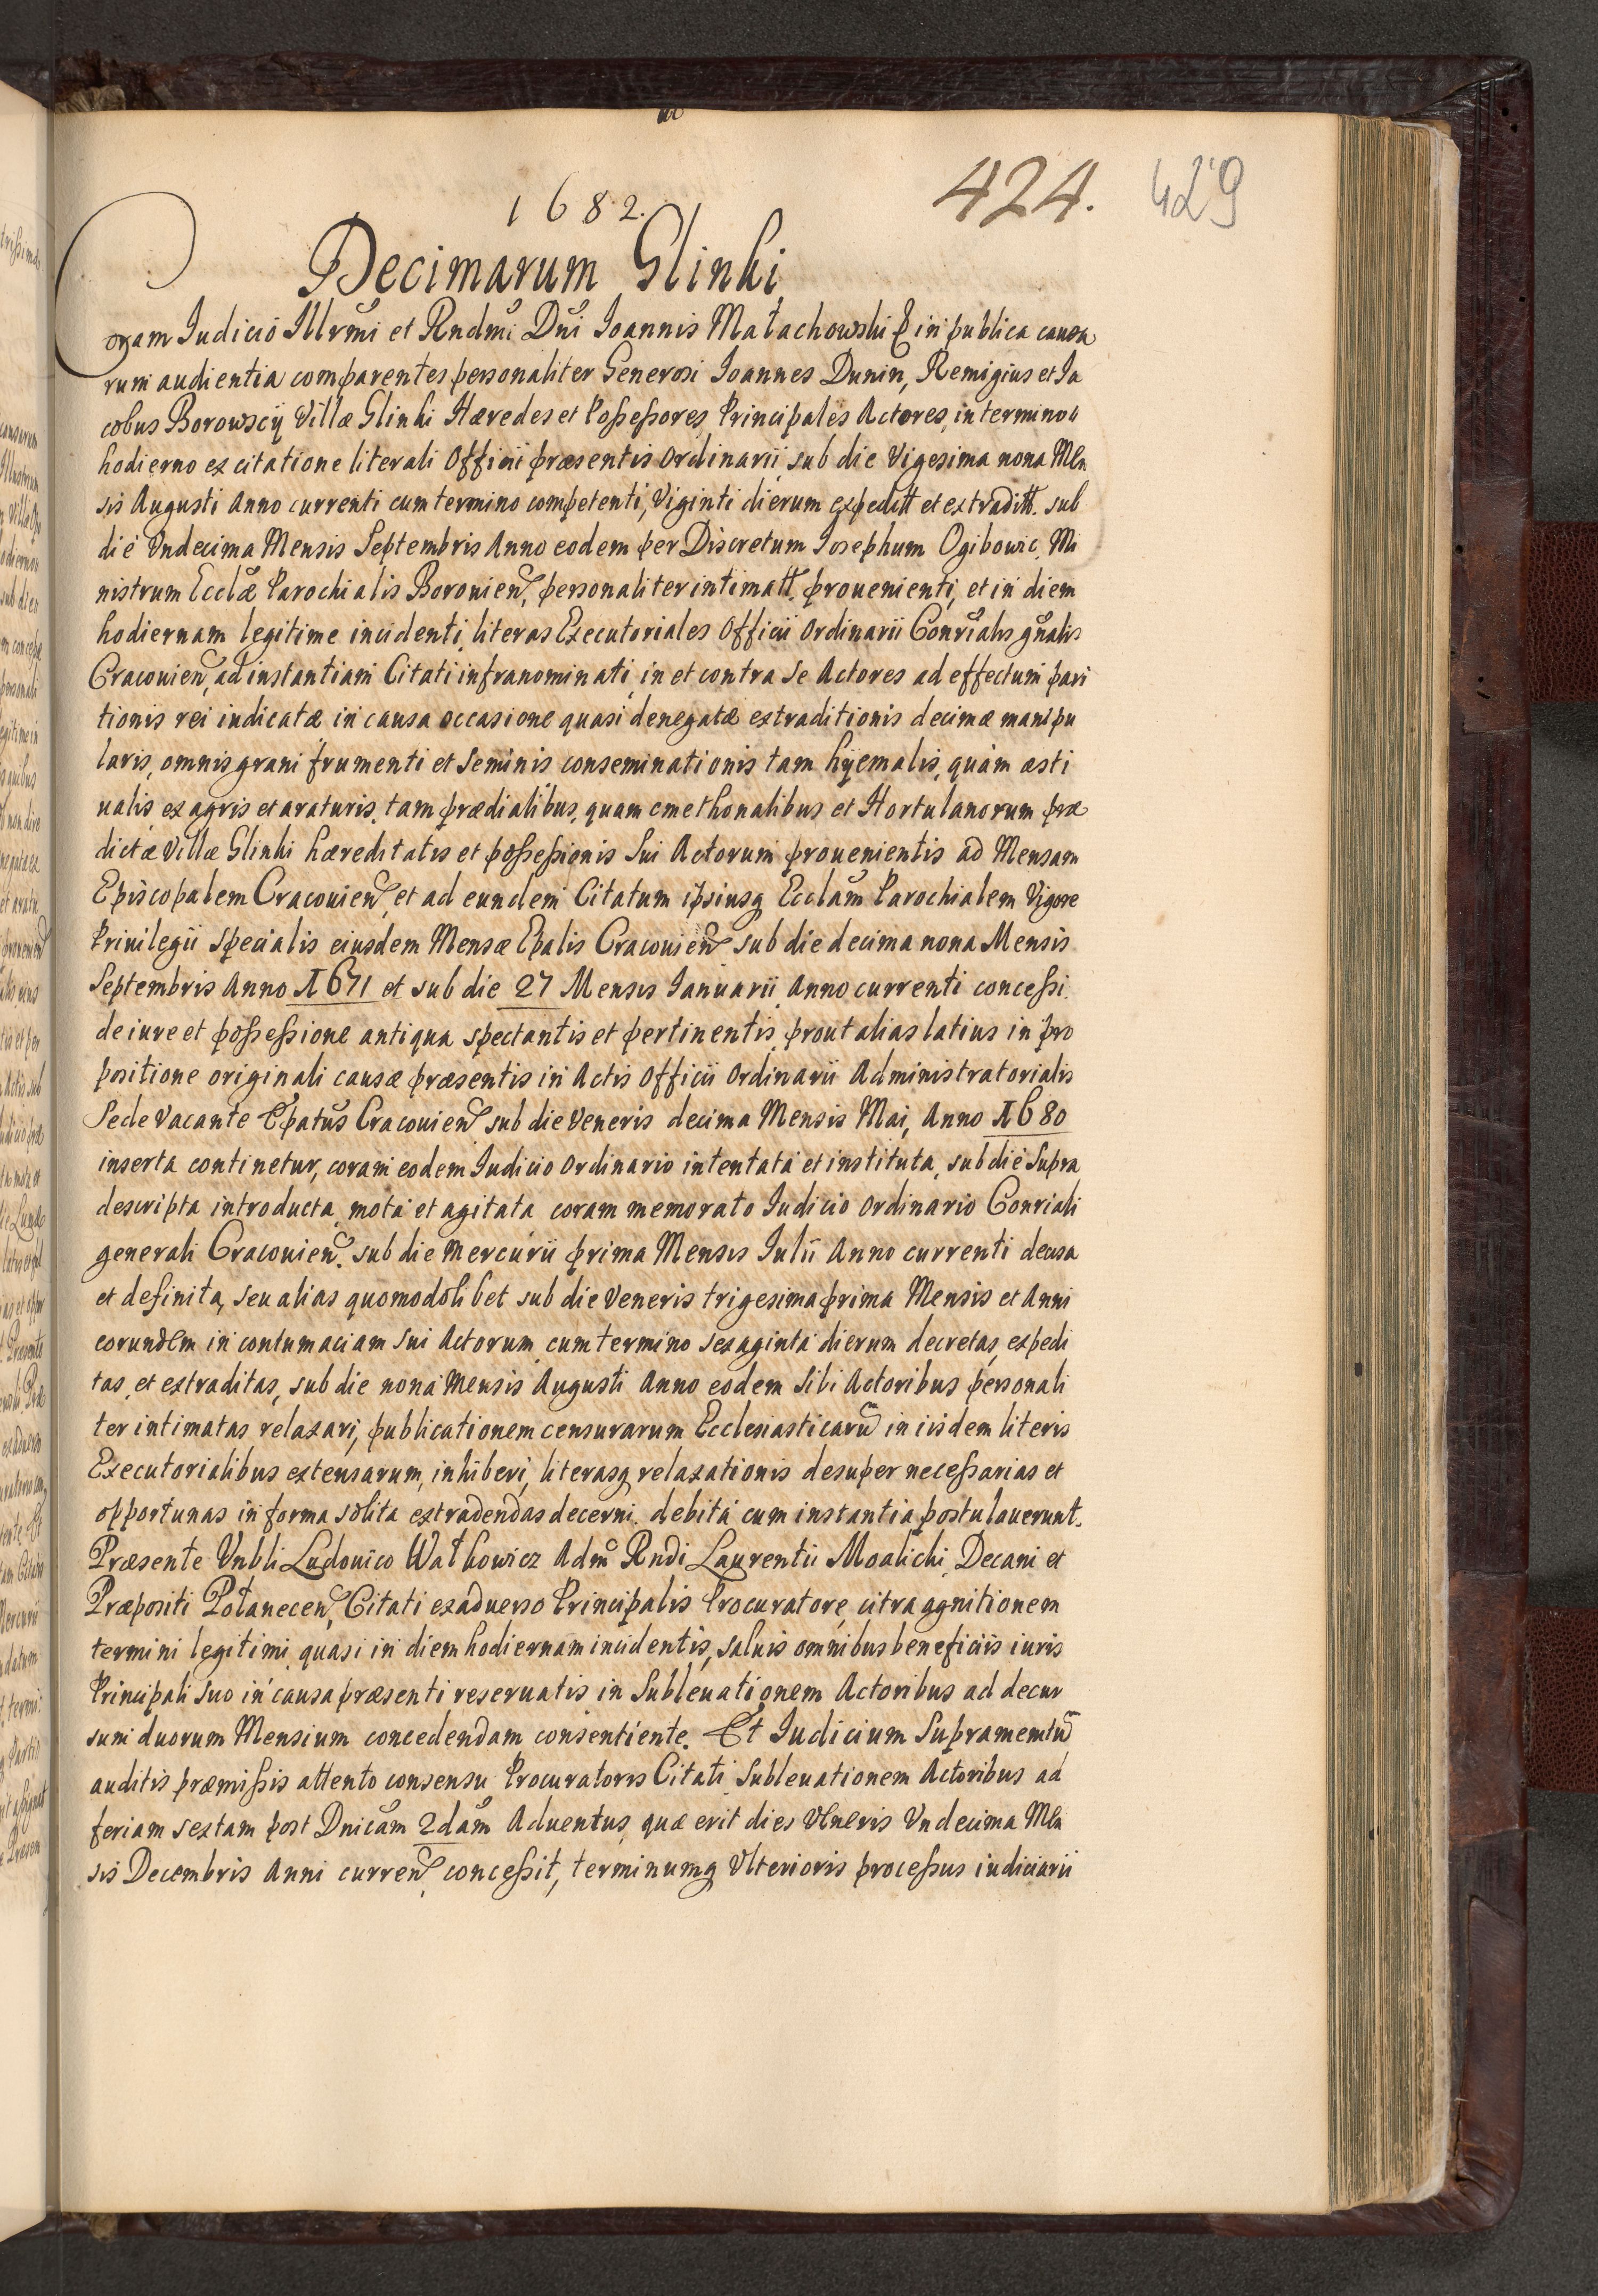 1682.
424.
429
Decimarum Glinki
Coram Iudicio Illrmi et Rndmi Dni Ioannis Małachowski E in publica causa
rum audientia comparentes personaliter Generosi Ioannes Dunin, Remigius et Ia
cobus Borowscÿ Villæ Glinki Hæredes et Possessores Principales Actores, in termino
hodierno ex citatione literali Officii præsentis Ordinarii sub die Vigesima nona Men
sis Augusti Anno currenti cum termino competenti, Viginti dierum expeditt et extraditt. sub
die Vndecima Mensis Septembris Anno eodem per Discretum Iosephum Ogibowic, Mi
nistrum Ecclæ Parochialis Boronien, personaliter intimatt. prouenienti, et in diem
hodiernam legitime incidenti, literas Executoriales Officii Ordinarii Conrialis gnalis
Cracouien, ad instantiam Citati infranominati, in et contra se Actores ad effectum pari
tionis rei iudicatæ in causa occasione quasi denegatæ extraditionis decimæ manipu
laris, omnis grani frumenti et seminis conseminationis tam hÿemalis, quàm æsti
ualis ex agris et araturis, tam prædialibus, quam cmethonalibus et Hortulanorum præ
dictæ Villæ Glinki hæreditatis et possessionis sui Actorum prouenientis ad Mensam
Episcopalem Cracouien, et ad eundem Citatum ipsiusq Ecclam Parochialem Vigore
Priuilegii specialis eiusdem Mensæ Epalis Cracouien sub die decima nona Mensis
Septembris Anno 1671 et sub die 27 Mensis Ianuarii Anno currenti concessi.
de iure et possessione antiqua spectantis et pertinentis, prout alias latius in pro
positione originali causæ præsentis in Actis Officii Ordinarii Administratorialis
Sede Vacante Epatus Cracouien sub die Veneris decima Mensis Mai, Anno 1680
inserta continetur, coram eodem Iudicio Ordinario intentata et instituta, sub die supra
descripta introducta, mota et agitata coram memorato Iudicio Ordinario Conriali
generali Cracouien. sub die Mercurii prima Mensis Iulii Anno currenti decisa
et definita, seu alias quomodolibet sub die Veneris trigesima prima Mensis et Anni
eorundem in contumaciam sui Actorum cum termino sexaginta dierum decretas, expedi
tas, et extraditas, sub die nona Mensis Augusti Anno eodem sibi Actoribus personali
ter intimatas relaxari, publicationem censurarum Ecclesiasticaru in iisdem literis
Executorialibus extensarum, inhiberi, literasq relaxationis desuper necessarias et
opportunas in forma solita extradendas decerni, debita cum instantia postulauerunt.
Præsente Vnbli Ludouico Wałkowicz Adm Rndi Laurentii Moalichi, Decani et
Præpositi Połanecen, Citati exaduerso Principalis Procuratore, citra agnitionem
termini legitimi, quasi in diem hodiernam incidentis, saluis omnibus beneficiis iuris
Principali suo in causa præsenti reseruatis in Subleuationem Actoribus ad decur
sum duorum Mensium concedendam consentiente. Et Iudicium Supramemtu
auditis præmissis attento consensu Procuratoris Citati Subleuationem Actoribus ad
feriam sextam post Dnicam 2dam Aduentus, quæ erit dies Veneris Vndecima Men
sis Decembris Anni curren, concessit, terminumq Vlterioris processus iudiciarii